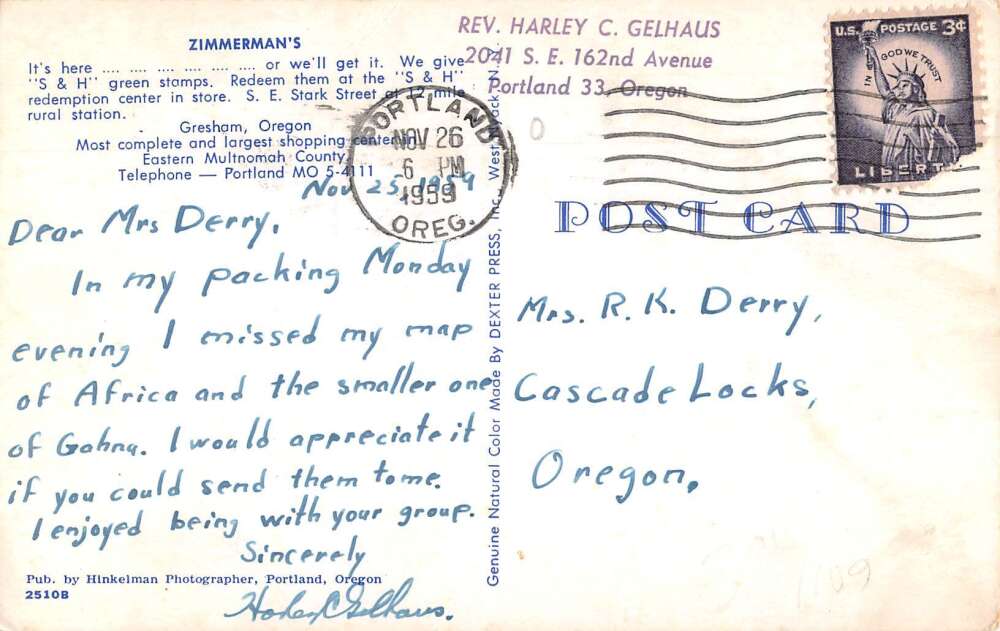 ZIMMERMAN'S
It's here .... .... .... .... .... .... or we'll get it. We give
"S & H" green stamps. Redeem them at the "S & H"
redemption center in store. S. E. Stark Street at 12-mile
rural station.
Gresham, Oregon
Most complete and largest shopping center in
Eastern Multnomah County
Telephone — Portland MO 5-4111
REV. HARLEY C. GELHAUS
2041 S. E. 162nd Avenue
Portland 33, Oregon
PORTLAND
NOV 26
6 PM
1959
OREG.
U.S. POSTAGE 3¢
IN GOD WE TRUST
LIBERTY
POST CARD
Nov 25, 1959
Dear Mrs Derry,
In my packing Monday
evening I missed my map
of Africa and the smaller one
of Gahna. I would appreciate it
if you could send them to me.
I enjoyed being with your group.
Sincerely
Harley C Gelhaus.
Pub. by Hinkelman Photographer, Portland, Oregon
2510B
Genuine Natural Color Made By DEXTER PRESS, Inc., West Nyack, N. Y.
Mrs. R. K. Derry,
Cascade Locks,
Oregon.